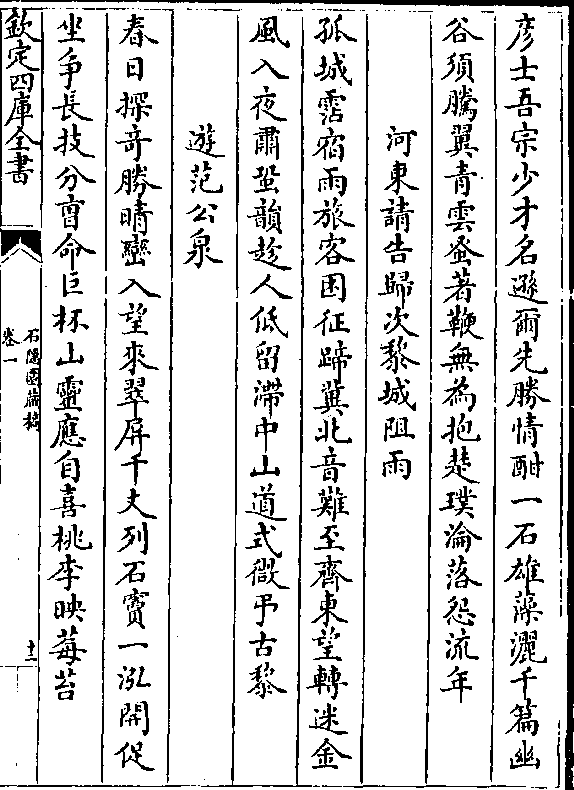 彦士吾宗少才名遜爾先勝情酣一石雄藻灑千篇幽
谷須騰翼青雲蚤著鞭無為抱楚璞淪落怨流年
河東請告歸次黎城阻雨
孤城霑宿雨旅客困征蹄冀北音難至齊東望轉迷金
風入夜肅蛩韻趁人低留滯中山道式微弔古黎
遊范公泉
春日探奇勝晴巒入望來翠屏千丈列石竇一泓開促
坐爭長技分曺命巨杯山靈應自喜桃李映莓苔
欽定四庫全書
石隱園藏稿
卷一
十二